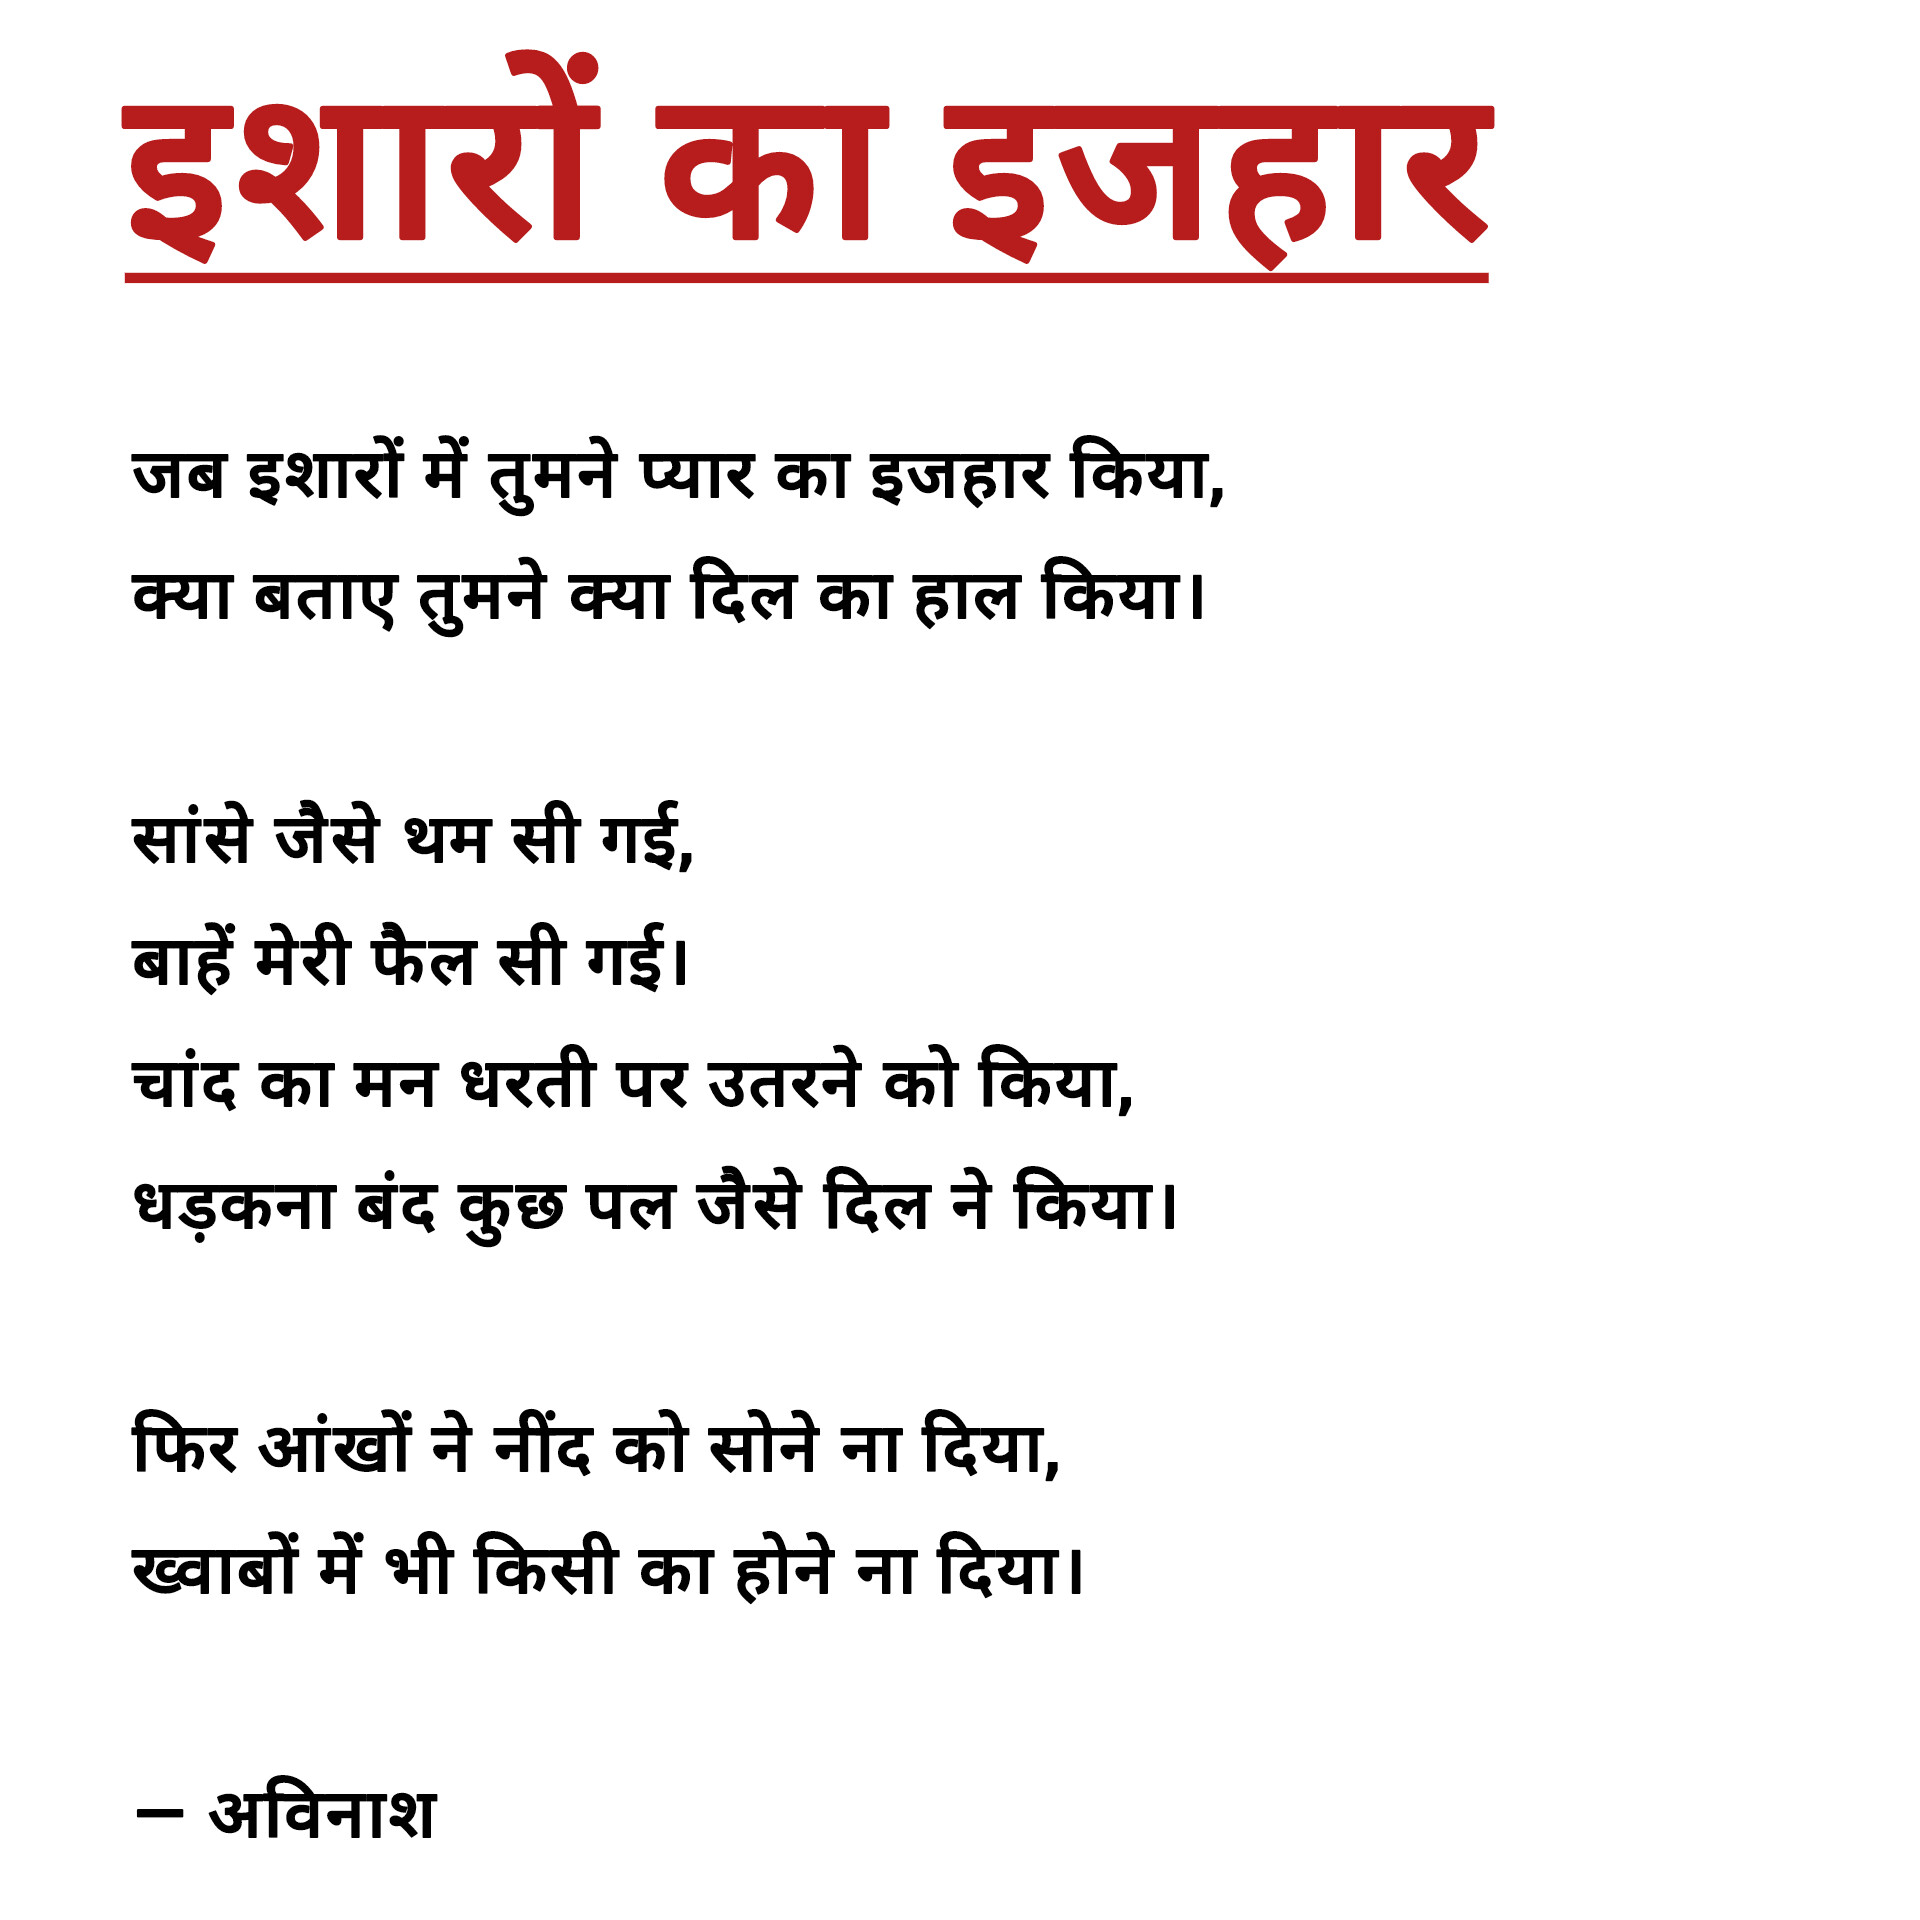 इशारों का इजहार
जब इशारों में तुमने प्यार का इजहार किया,
क्या बताए तुमने क्या दिल का हाल किया।
सांसे जैसे थम सी गई,
बाहें मेरी फैल सी गई।
चांद का मन धरती पर उतरने को किया,
धड़कना बंद कुछ पल जैसे दिल ने किया।
फिर आंखों ने नींद को सोने ना दिया,
ख्वाबों में भी किसी का होने ना दिया।
— अविनाश